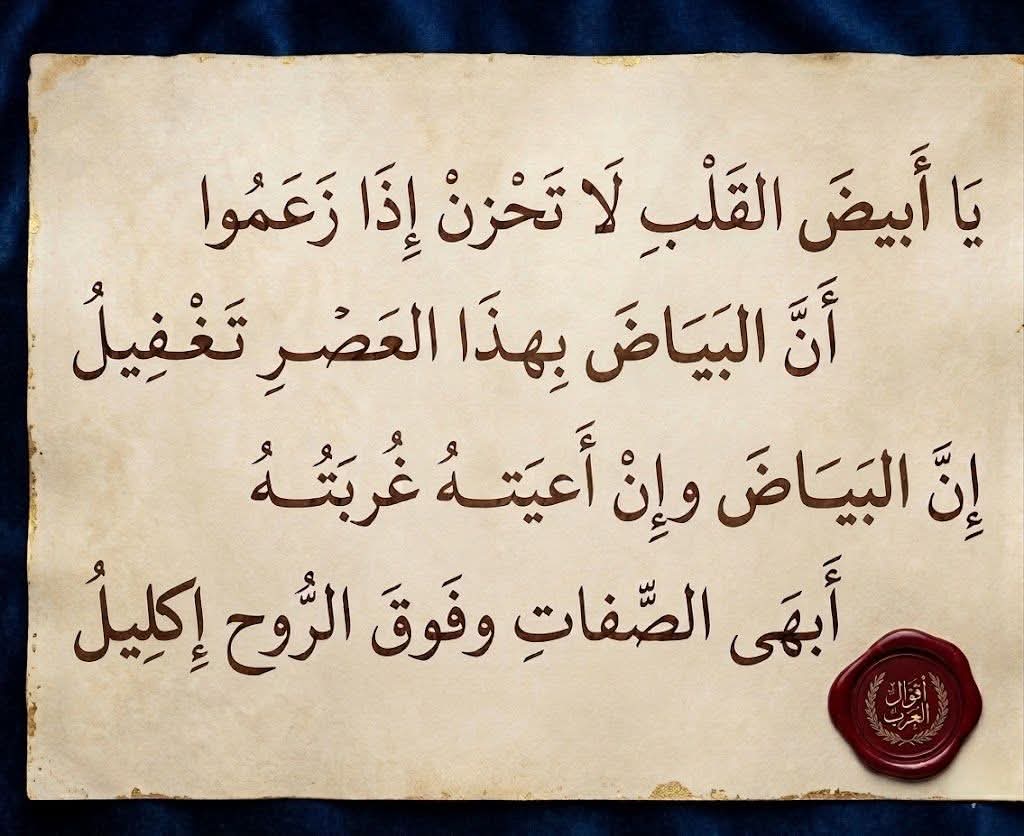 يَا أَبيضَ القَلْبِ لَا تَحْزنْ إِذَا زَعَمُوا
أَنَّ البَيَاضَ بِهذَا العَصْرِ تَغْفِيلُ
إِنَّ البَيَاضَ وإِنْ أَعيَتهُ غُربَتُهُ
أَبهَى الصّفاتِ وفَوقَ الرُّوح إِكلِيلُ
أقوال
العرب